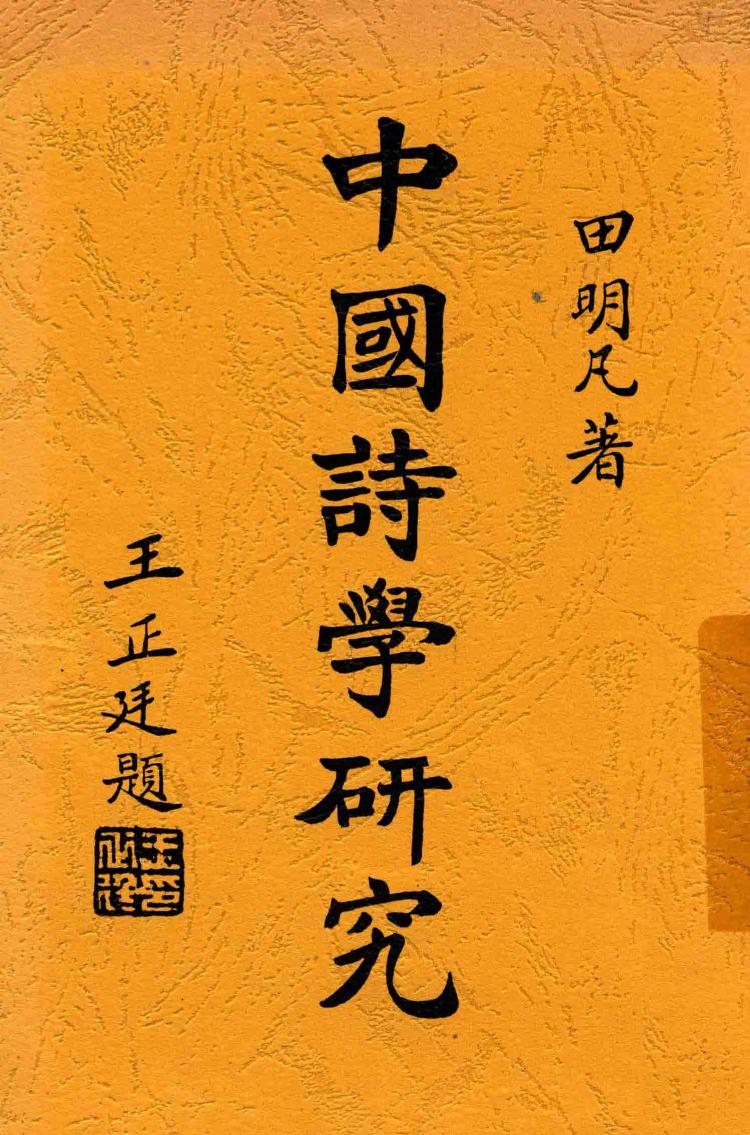 田明凡著
中國詩學研究
王正廷題